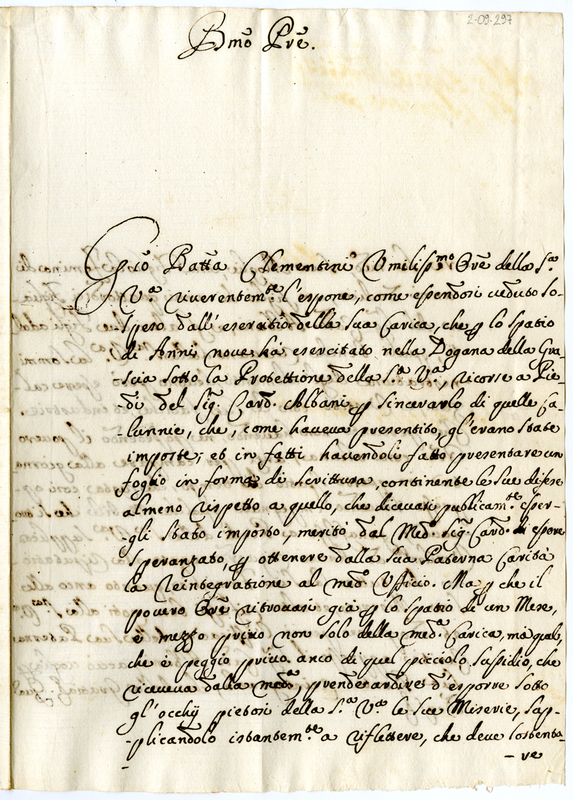 2-09-297
Bmo Pre.
Gio Batta Clementini Umiliss.mo Ore della S.a
V.a riverentem.te l'espone, come essendosi veduto so-
speso dall' esercitio della sua Carica, che p lo spatio
di Anni nove ha esercitato nella Dogana della Gra-
scia sotto la Protettione della S.a V.a, ricorse a Pie-
di del Sig. Card. Albani p sincerarlo di quelle Ca-
lunnie, che, come haveva presentito, gl'erano state
imposte; et in fatti havendoli fatto presentare un
foglio in forma di scrittura, continente le sue difese
almeno rispetto a quello, che dicevasi publicam.te esser-
-gli stato imposto, meritò dal Med. Sig. Card. di essere
speranzato, p ottenere dalla sua Paterna Carità
la Reintegratione al med.o Ufficio. Ma p che il
povero Ore ritrovasi già p lo spatio di un Mese,
e mezzo privo non solo della med.a Carica, ma quel,
che è peggio privo anco di quel picciolo sussidio, che
riceveva dalla med.a, prende ardire d'esporre sotto
gl'occhij pietosi della S.a V.a le sue Miserie, sup-
-plicandolo istantem.te a riflettere, che deve sostenta-
-re